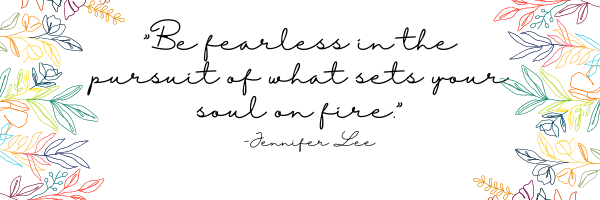 "Be fearless in the
pursuit of what sets your
soul on fire."
-Jennifer Lee